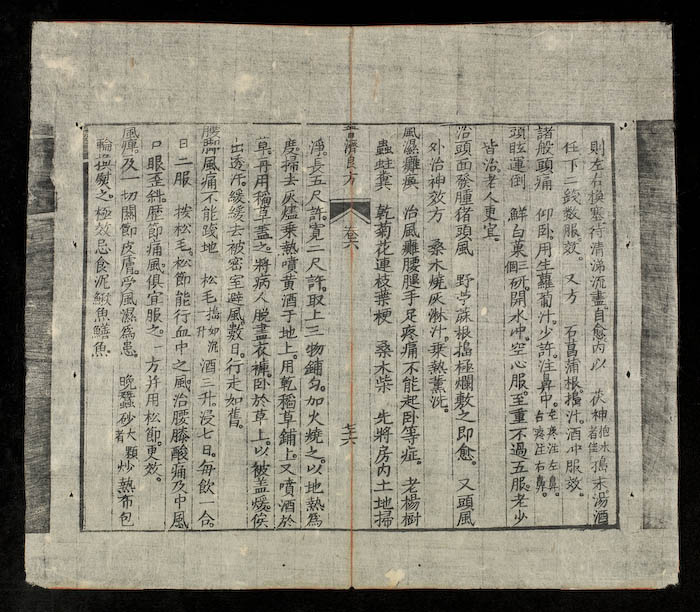 則左右換塞待清涕流盡自愈內以 茯神抱木者佳搗末湯酒
任下二錢數服效。 又方 石菖蒲根搗汁。酒冲服效。
諸般頭痛 仰卧。用生蘿蔔汁。少許。注鼻中。左疼注左鼻。右疼注右鼻。
頭眩運倒 鮮白菓三個研。開水冲。空心服。至重不過五服。老少
皆治。老人更宜。
治頭面發腫猪頭風 野苧蔴根搗極爛敷之即愈。 又頭風
外治神效方 桑木燒灰淋汁。乘熱薰洗。
風濕癱瘓 治風癱腰腿手足疼痛不能起卧等症。 老楊樹
蟲蛀糞 乾菊花連枝葉梗 桑木柴 先將房內土地掃
普濟良方 卷六 七六
淨。長五尺許。寬二尺許。取上三物鋪勻。加火燒之。以地熱為
度。掃去灰燼乘熱噴黃酒于地上。用乾稻草鋪上。又噴酒於
草。再用稻草盖之。將病人脫盡衣褲卧於草上。以被盖煖。俟
出透汗。緩緩去被密室避風數日。行走如舊。
腰脚風痛不能踐地 松毛搗如泥一升 酒三升。浸七日。每飲一合。
日二服 按松毛。松節能行血中之風。治腰膝酸痛及中風
口眼歪斜。歷節痛風。俱宜服之。 一方幷用松節。更效。
風痺。及一切關節皮膚。受風濕為患。 晚蠶砂大顆者炒熱布包
輪熨之。極效忌食泥鰍魚鱔魚。